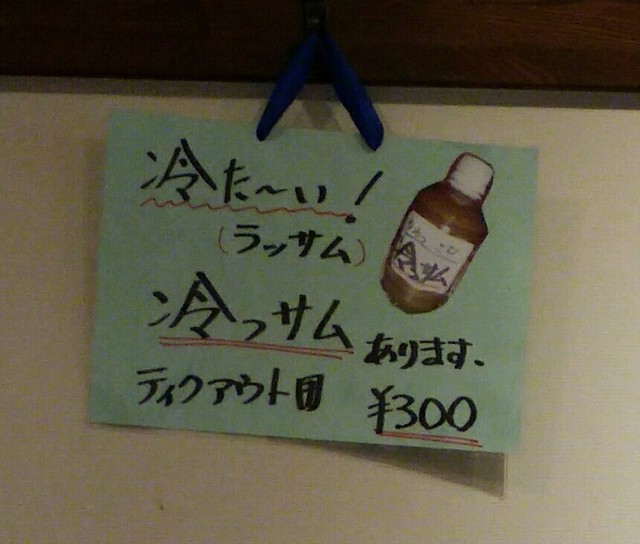 冷た〜い!
(ラッサム)
冷っサム
あります、
ティクアウト用
¥300
冷っサム